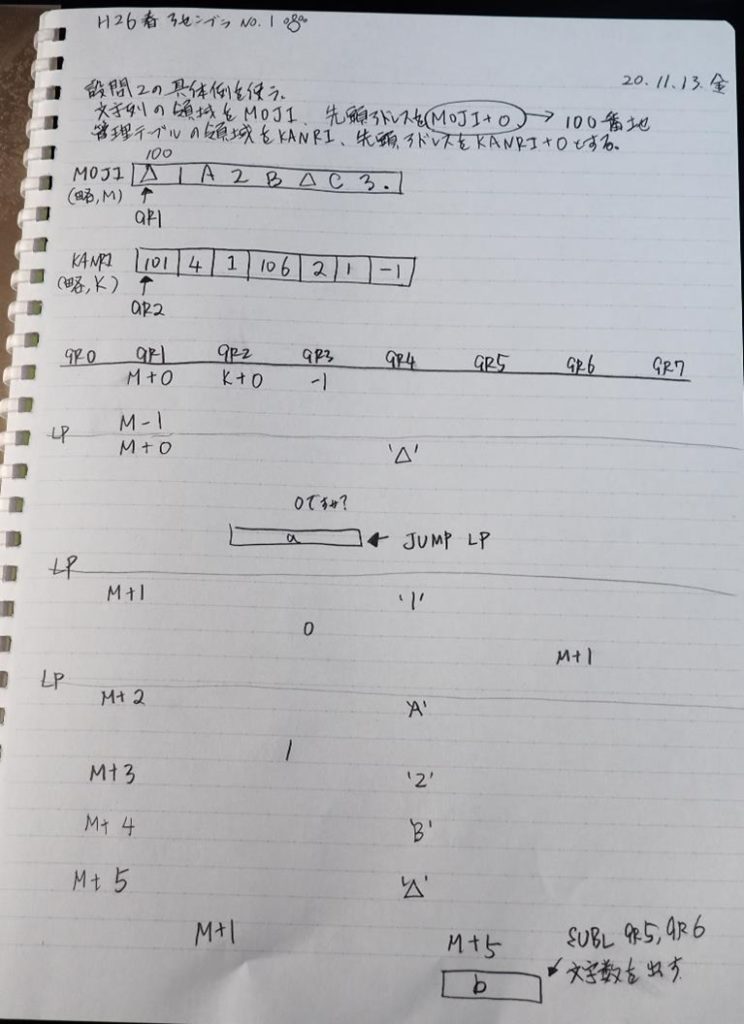 H26春 アセンブラ No.1
20.11.13.金
設問2の具体例を使う。
文字列の領域をMOJI、先頭アドレスをMOJI+0 → 100番地
管理テーブルの領域をKANRI、先頭アドレスをKANRI+0とする。
100
MOJI △ 1 A 2 B △ C 3 .
(略,M)
GR1
KANRI 101 4 1 106 2 1 -1
(略,K)
GR2
GR0 GR1 GR2 GR3 GR4 GR5 GR6 GR7
M+0 K+0 -1
M-1
LP
M+0 '△'
0ですか?
a ← JUMP LP
LP
M+1 '1'
0
M+1
LP
M+2 'A'
1
M+3 '2'
M+4 'B'
M+5 '△'
M+1 M+5 SUBL GR5,GR6
b 文字数を出す